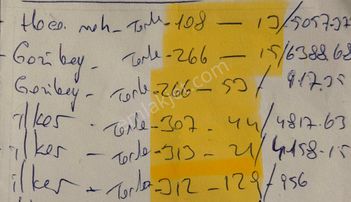 Hoca mah - Tarla - 108 - 13/5057.37
- Gazibey - Tarla - 266 - 15/6388.68
Gazibey - Tarla - 266 - 53/ 917.35
ilker - Tarla - 307 - 44/4817.63
ilker - Tarla - 313 - 21/4158.15
ilker - Tarla - 312 - 129 - 956
emlakjet.com